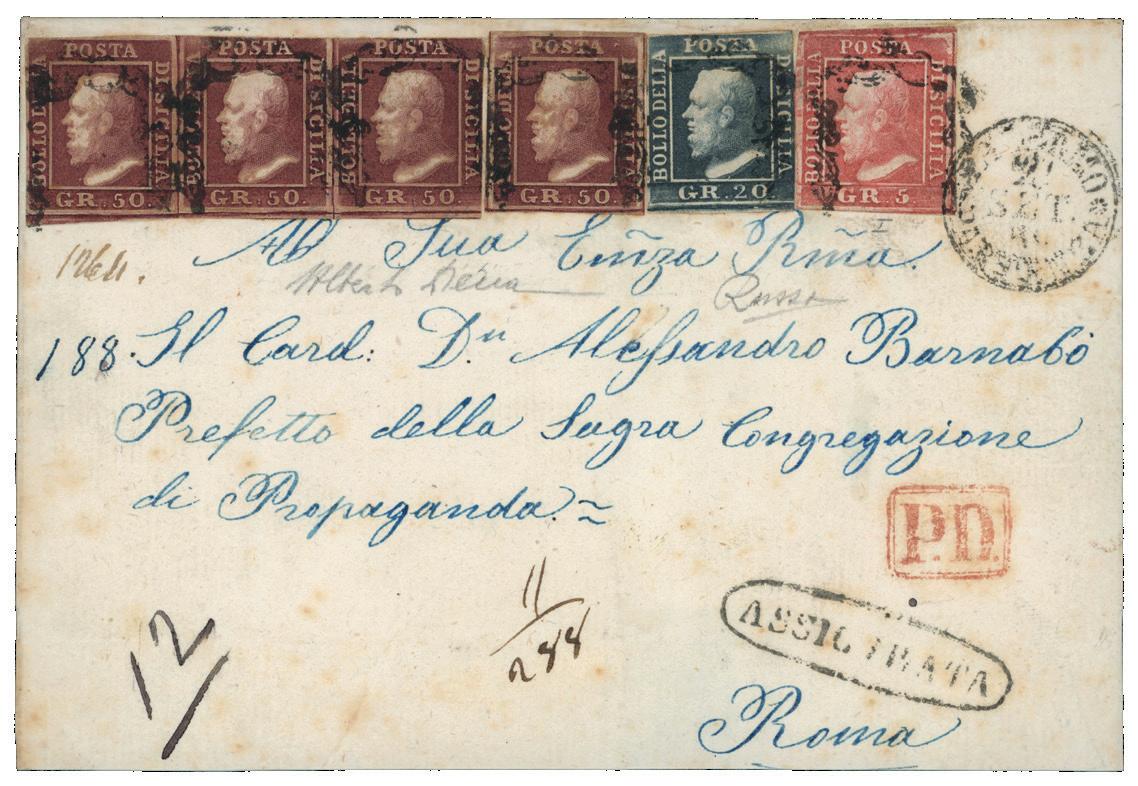 POSTA BOLLO DELLA DI SICILIA GR. 50.
POSTA BOLLO DELLA DI SICILIA GR. 50.
POSTA BOLLO DELLA DI SICILIA GR. 50
POSTA BOLLO DELLA DI SICILIA GR. 50
POSTA BOLLO DELLA DI SICILIA GR. 20
POSTA BOLLO DELLA DI SICILIA GR. 5
SET.
Sua Em̃za Rm̃a.
Russo
188. Il Card: Dn Alessandro Barnabò
Prefetto della Sagra Congregazione
di Propaganda.
P.D.
11
288
12
ASSICURATA
Roma